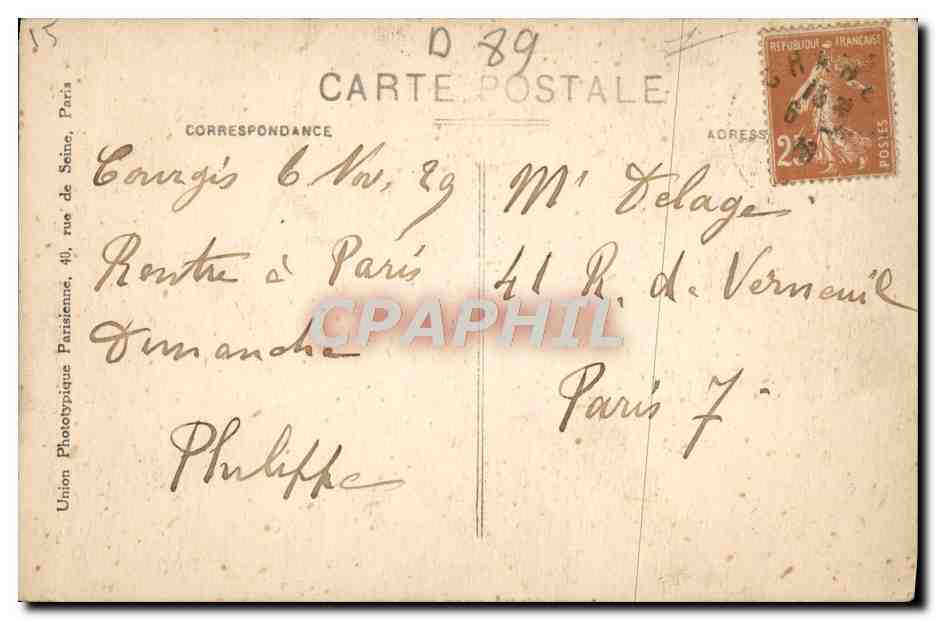 35
D 89
CARTE POSTALE
CORRESPONDANCE
ADRESSE
RÉPUBLIQUE FRANÇAISE
25
POSTES
Courgis 6 Nov. 29
Rentre à Paris
Dimanche
Philippe
Mr Delage
41 R. de Verneuil
Paris 7
CPAPHIL
Union Phototypique Parisienne, 40, rue de Seine, Paris